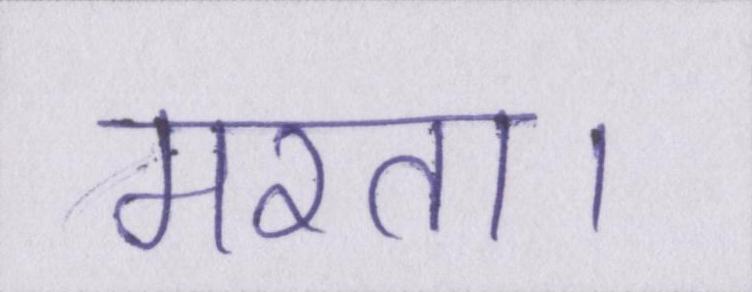 मरता।